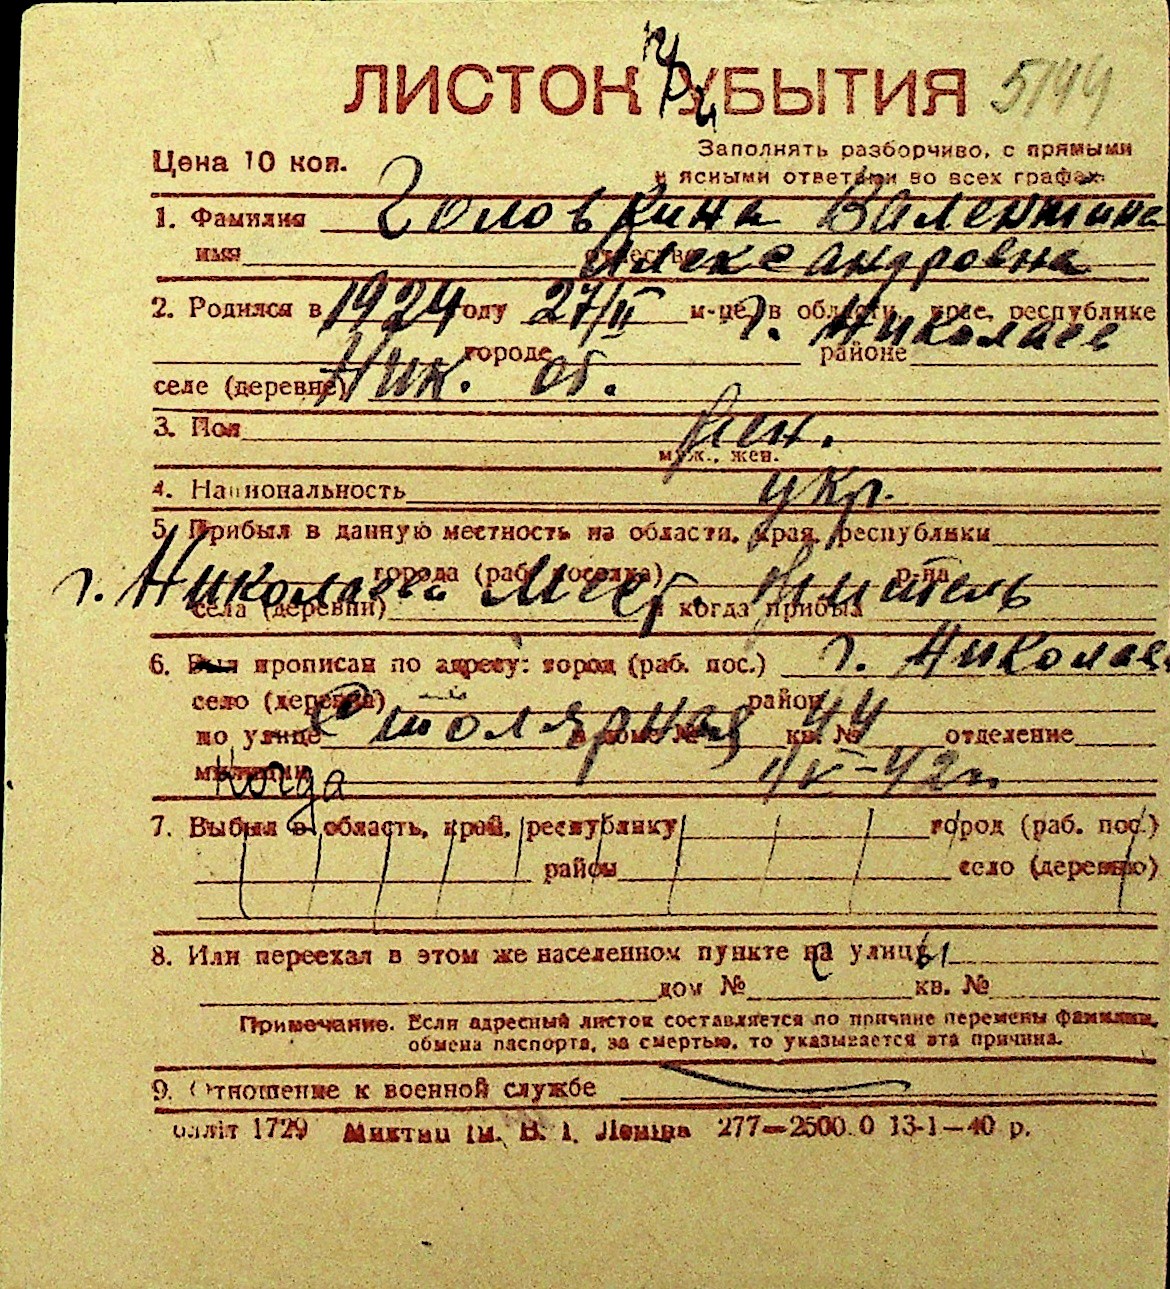 ЛИСТОК при УБЫТИЯ 5144
Цена 10 коп.
Заполнять разборчиво, с прямыми
и ясными ответами во всех графах.
1. Фамилия Головкина Валентина
имя отчество Александровна
2. Родился в 1924 году 27/II м-це, в области, крае, республике г. Николаев
городе районе
селе (деревне) Ник. об.
3. Пол жен.
муж., жен.
4. Национальность укр.
5. Прибыл в данную местность из области, края, республики
города (раб. поселка) р-на
г. Николаева Мест. житель
села (деревни) и когда прибыл
6. Был прописан по адресу: город (раб. пос.) г. Николаев
село (деревня) район
по улице Столярная в доме № 44 кв. № отделение
милиции Когда IV-42г.
7. Выбыл в область, край, республику город (раб. пос.)
район село (деревню)
8. Или переехал в этом же населенном пункте на улицу с ы
дом № кв. №
Примечание. Если адресный листок составляется по причине перемены фамилии,
обмена паспорта, за смертью, то указывается эта причина.
9. Отношение к военной службе
олліт 1729 ім. В. І. Леніна 277—2500.0 13-1—40 р.